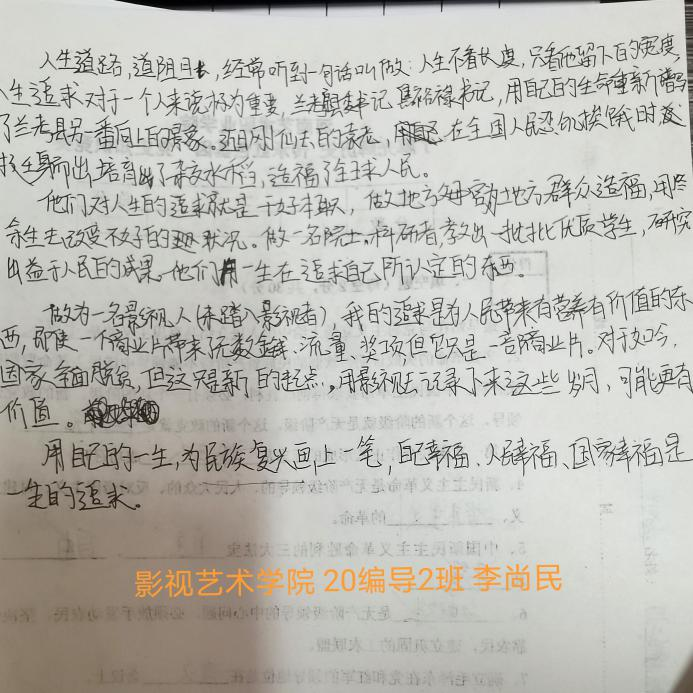 人生道路,道阻且长,经常听到一句话叫做:人生不看长度,只看他留下的宽度,
人生追求对于一个人来说极为重要,兰考县委书记焦裕禄书记,用自己的生命重新谱写
了兰考县另一番向上的景象。近日刚仙去的袁老,在全国人民忍饥挨饿时挺
身而出,培育出了杂交水稻,造福了全球人民。
他们对人生的追求就是干好本职,做地方父母官为地方群众造福,用尽
余生去改变不好的现状况。做一名院士、科研者,教出一批批优质学生,研究
出益于人民的成果。他们用一生在追求自己所认定的东西。
做为一名影视人(未踏入影视者),我的追求是为人民带来有营养有价值的东
西,即使一个商业片带来无数金钱、流量、奖项,但它只是一部商业片。对于如今,
国家全面脱贫,但这只是新的起点。用影视去记录下来这些岁月,可能更有
价值。
用自己的一生,为民族复兴画上一笔,自己幸福、人民幸福、国家幸福是
一生的追求。
影视艺术学院 20编导2班 李尚民